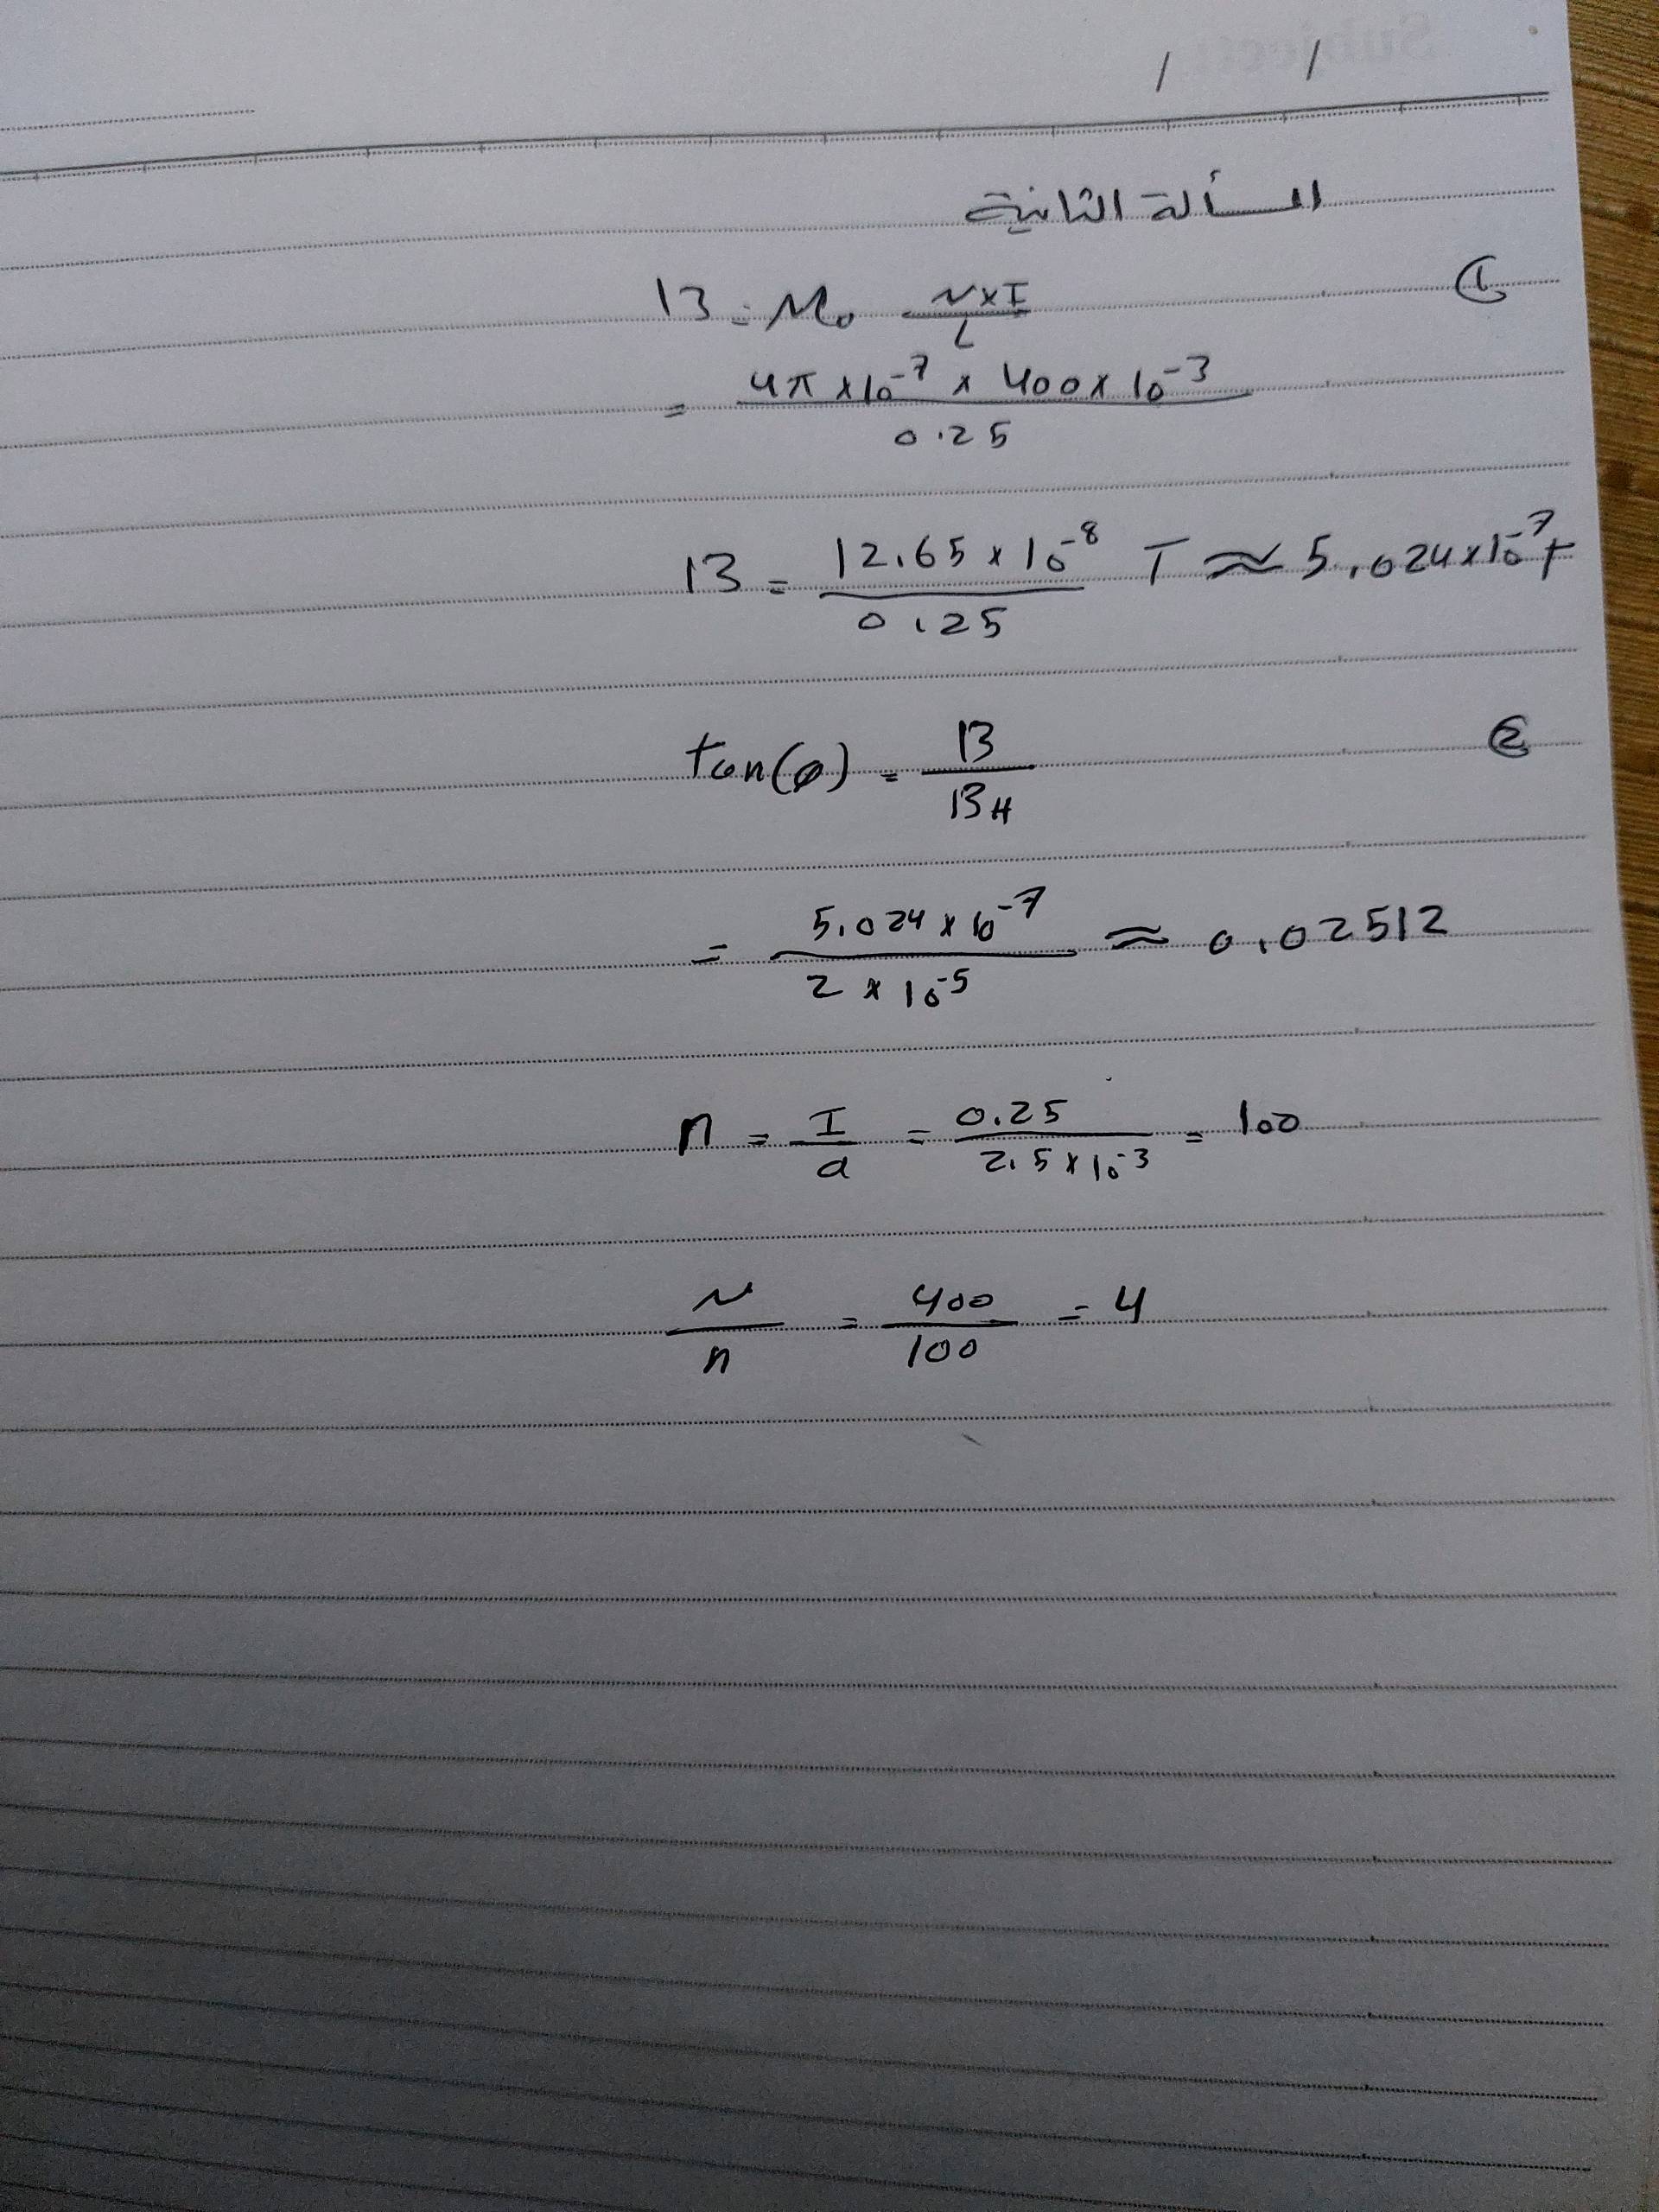 / /
المسألة الثانية
①
B = μ₀ N×I / L
= 4π × 10⁻⁷ × 400 × 10⁻³ / 0.25
B = 12.65 × 10⁻⁸ / 0.25 T ≈ 5.024 × 10⁻⁷ T
②
tan(θ) = B / B_H
= 5.024 × 10⁻⁷ / 2 × 10⁻⁵ ≈ 0.02512
n = I / a = 0.25 / 2.5 × 10⁻³ = 100
N / n = 400 / 100 = 4